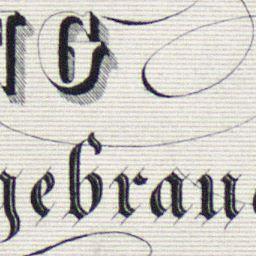 G
gebrau